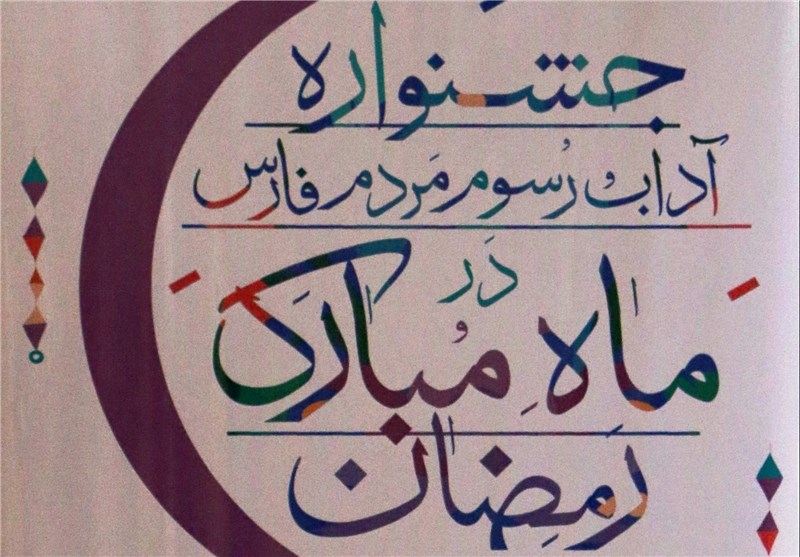 جشنواره
آداب رُسوم مَردم فارس
دَر
ماهِ مُبارَک
رَمِضان